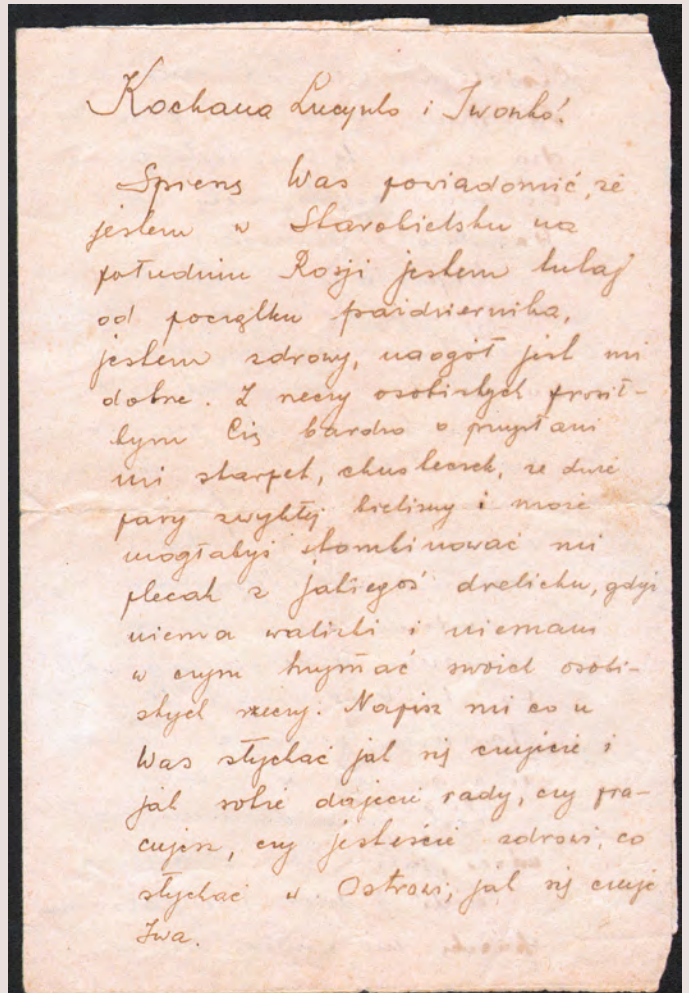 Kochana Lucynko i Iwonko!
Spieszę Was powiadomić, że
jestem w Starobielsku na
południu Rosji jestem tutaj
od początku października,
jestem zdrowy, naogół jest mi
dobrze. Z rzeczy osobistych prosił-
bym Cię bardzo o przysłani
mi skarpet, chusteczek, ze dwie
pary zwykłej bielizny i może
mogłabyś skombinować mi
plecak z jakiegoś drelichu, gdyż
niema walizki i niemam
w czym trzymać swoich osobi-
stych rzeczy. Napisz mi co u
Was słychać jak się czujecie i
jak sobie dajecie rady, czy pra-
cujesz, czy jesteście zdrowi, co
słychać w Ostrowi, jak się czuje
Iwa.